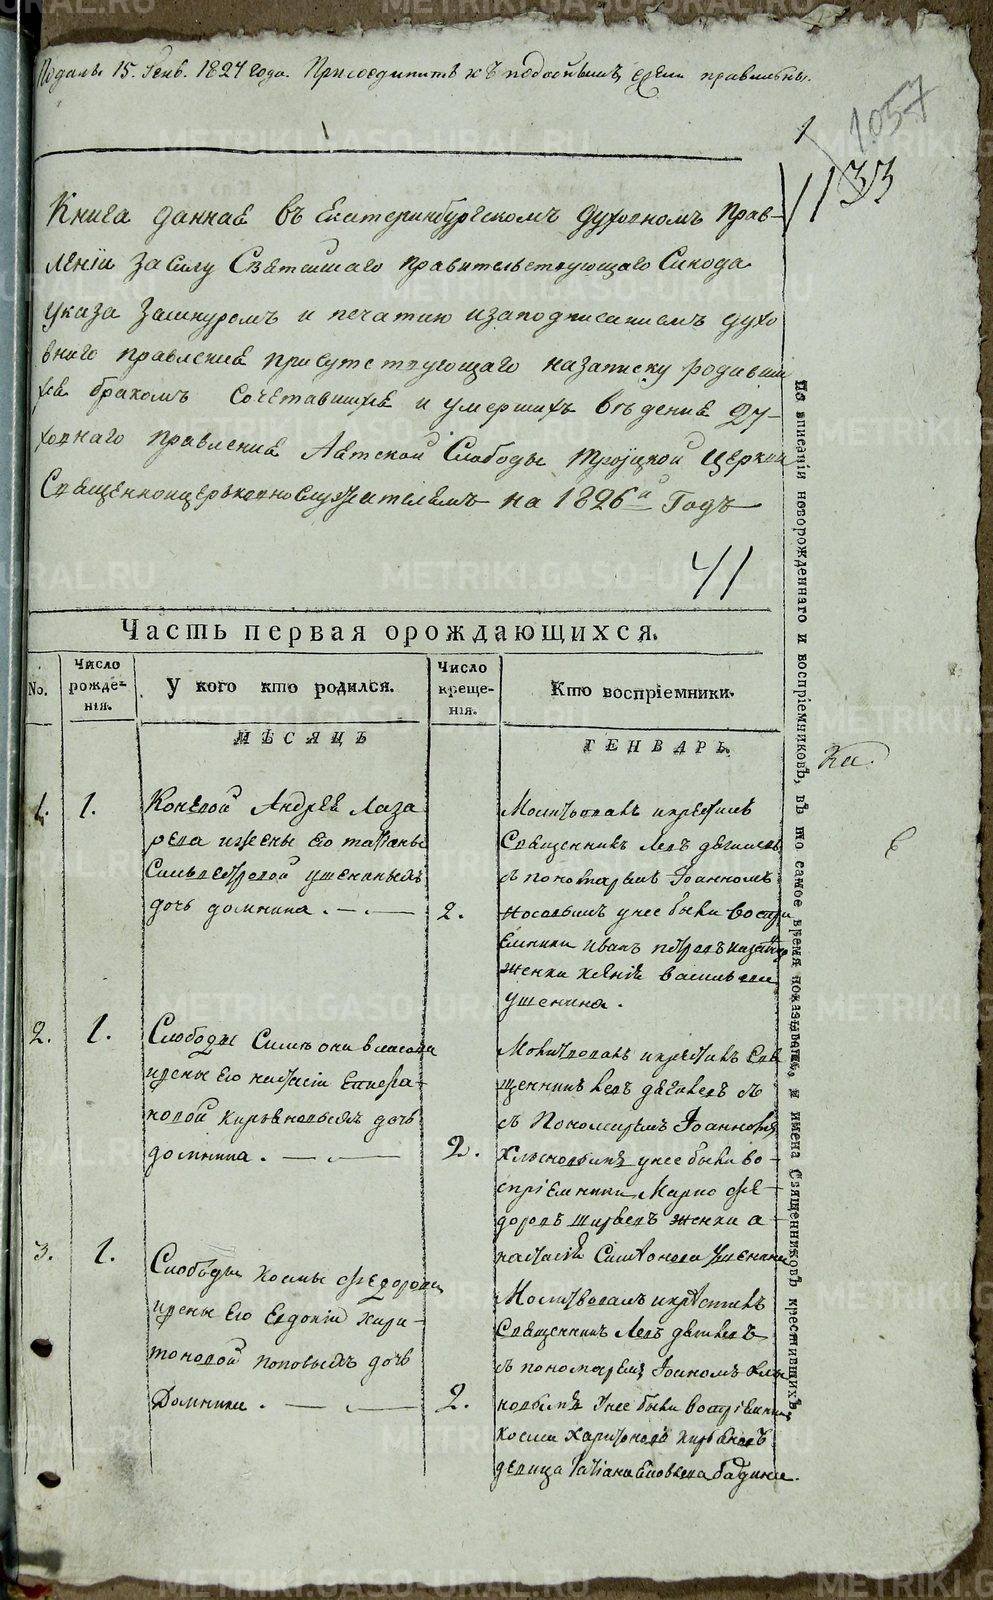 Подана 15. Генв. 1827 года. Присоединить къ подобнымъ
1057
1
33
Книга данная въ Екатеринбургскомъ Духовномъ Прав-
леніи засилу Святѣйшаго Правительствующаго Синода
указа зашнуромъ и печатью изаподписаніемъ духо
внаго правленія присутствующаго назаписку родивши
хся бракомъ сочетавшихся и умершихъ вѣденія Ду-
ховнаго правленія Аятской Слободы Троицкой Церкви
Священноцерковнослужителямъ на 1826й Годъ
41
Часть первая орождающихся.
No.
Число рожде- нія.
У кого кто родился.
Число креще- нія.
Кто воспріемники.
МѢСЯЦЪ
ГЕНВАРЬ.
1.
1.
Андрея Лаза
рева ижены его татьяны
Сильвестровой
дочь домнина.
2.
Молитвовалъ икрестилъ
Священникъ Левъ
съ пономаремъ Іоанномъ
унее были воспри
емники иванъ петровъ
женка ксенія васильева
ушенина.
2.
1.
Слободы Симеона власова
ижены его настасіи Епифа-
новой дочь
домнина.
2.
Молитвовалъ икрестилъ Свя
щенникъ левъ
съ Пономаремъ Іоанномъ
унее были во-
спріемники Марко Фе-
доровъ женка а-
настасія Симеонова
3.
1.
Слободы космы Федорова
ижены Его Евдокіи Хари-
тоновой поповыхъ дочь
Домника.
2.
Молитвовалъ икрестилъ
Священникъ Левъ
съ пономаремъ Іоаномъ
унее были воспріемники
косма Харитоновъ
девица Татіана
По вписаніи новорожденнаго и воспріемниковъ, въ то самое время показывать, и имена Священниковъ крестившихъ.
METRIKI.GASO-URAL.RU